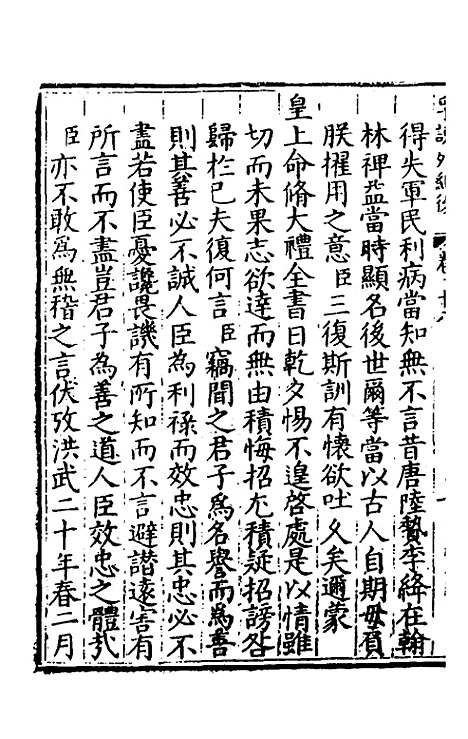 得失軍民利病當知無不言昔唐陸贄李絳在翰
林裨益當時顯名後世爾等當以古人自期毋負
朕擢用之意臣三復斯訓有懷欲吐久矣邇蒙
皇上命脩大禮全書日乾夕惕不遑啓處是以情雖
切而未果志欲達而無由積悔招尤積疑招謗咎
歸於已夫復何言臣竊聞之君子爲名譽而爲善
則其善必不誠人臣為利祿而效忠則其忠必不
盡若使臣憂讒畏譏有所知而不言避譖遠害有
所言而不盡豈君子為善之道人臣效忠之體㢤
臣亦不敢爲無稽之言伏攷洪武二十年春二月